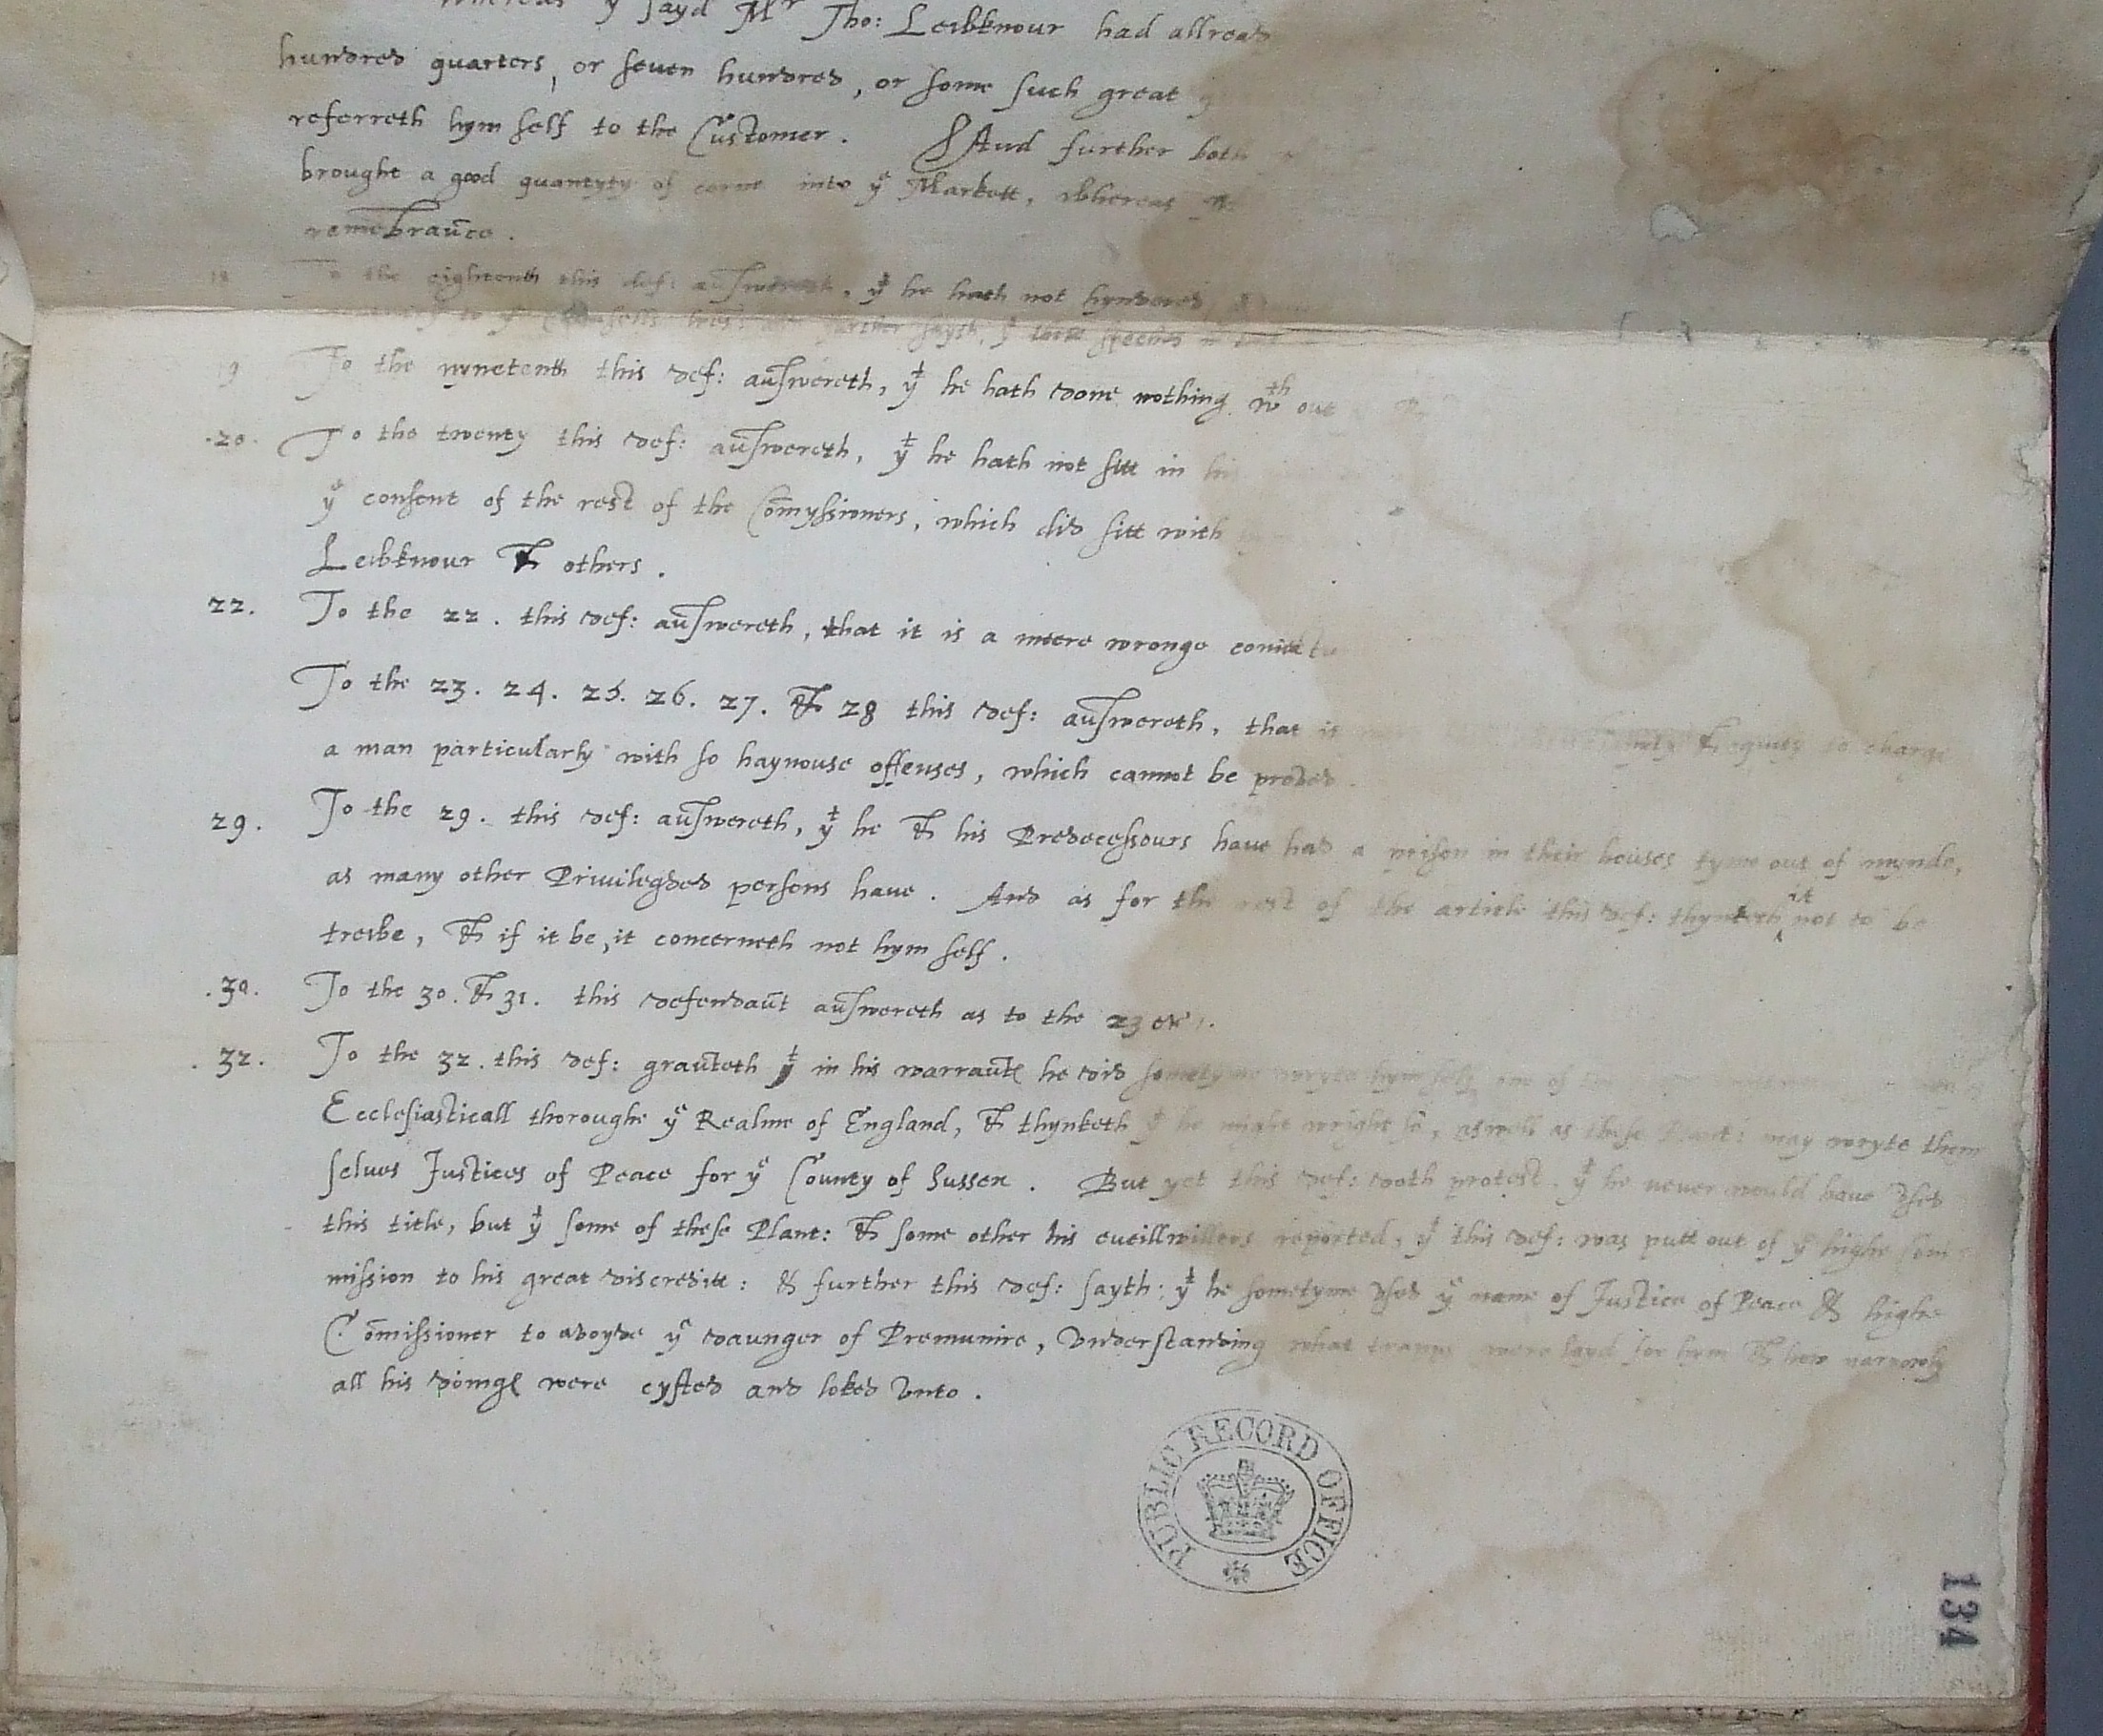 whereas yͤ sayd Mʳ Tho: Lewknour had allread
hundred quarters, or seven hundred, or some such great
referreth hym self to the Customer. And further both
brought a good quantyty of corne into yͤ Markett, whereas
remēbraūce.
the eighteenth this def: aūswereth, yͭ he hath not hyndered
further sayth, yͭ these speeches
19 To the nynetenth this def: aūswereth, yͭ he hath done nothing wᵗʰ out
.20. To the twenty this def: aūswereth, yͭ he hath not sitt in his
yͤ consent of the rest of the Cōmyssioners, which did sitt with
Lewknour & others.
22. To the 22. this def: aūswereth, that it is a meere wronge
To the 23. 24. 25. 26. 27. & 28 this def: aūswereth, that it & equity to charge
a man particularly with so haynouse offenses, which cannot be proved.
29. To the 29. this def: aūswereth, yͭ he & his Predecessours have had a prison in their houses tyme out of mynde,
as many other Priviledged persons have. And as for the rest of the article this def: thynketh it not to be
trewe, & if it be, it concerneth not hym self.
.30. To the 30. & 31. this defendaūt aūswereth as to the 23
.32. To the 32. this def: graūteth yͭ in his warraūtꝭ he did sometyme wryte hym self one of
Ecclesiasticall thoroughe yͤ Realme of England, & thynketh yͭ he might wright so, aswell as these Plant: may wryte them
selves Justices of Peace for yͤ County of Sussex. But yet this def: doth protest yͭ he never would have vsed
this title, but yͭ some of these Plant: & some other his eueillwillers reported, yͭ this def: was putt out of yͤ highe Com
mission to his great discreditt: & further this def: sayth: yͭ he sometyme vsed yͤ name of Justice of Peace & highe
Cōmissioner to avoyde yͤ daunger of Premunire, vnderstanding what trapps were layd for hym & how narrowly
all his doingꝭ were cyfted and loked vnto.
PUBLIC RECORD OFFICE
134